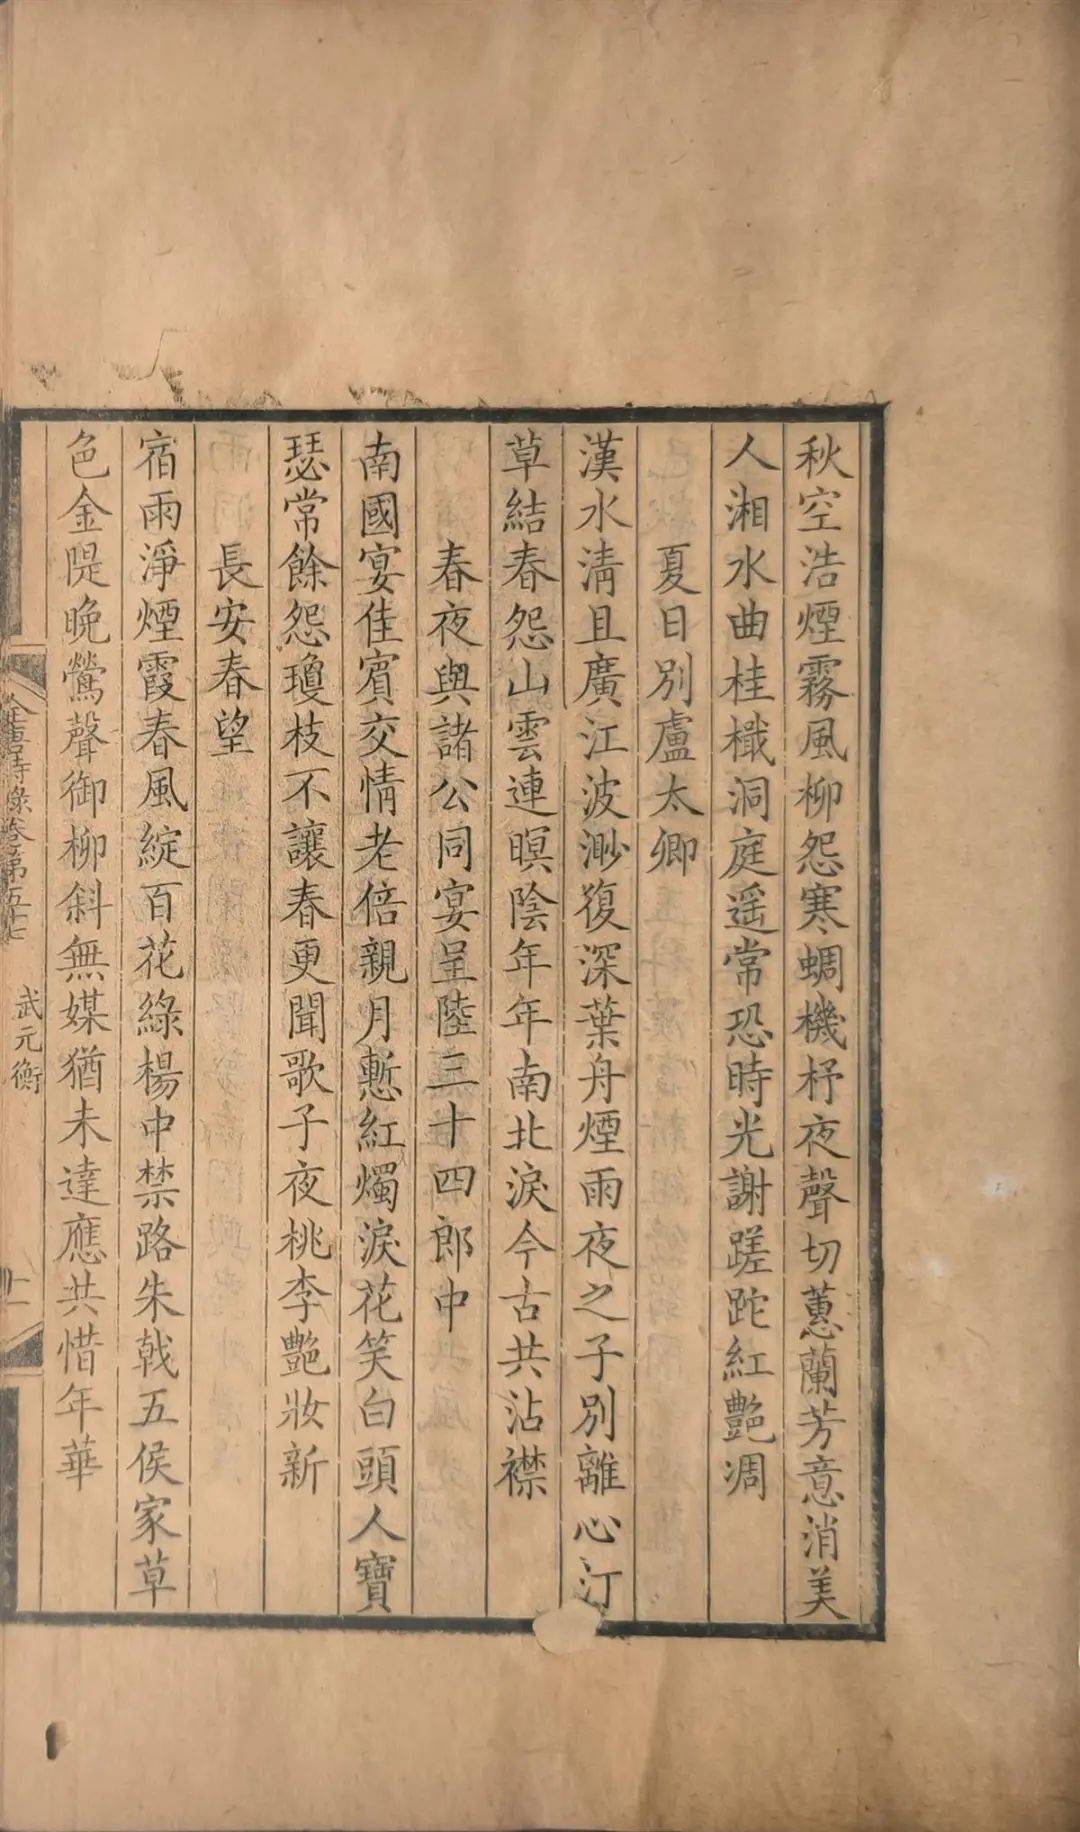 秋空浩煙霧風柳怨寒蜩機杼夜聲切蕙蘭芳意消美
人湘水曲桂檝洞庭遥常恐時光謝蹉跎紅艷凋
夏日別盧太卿
漢水清且廣江波渺復深葉舟煙雨夜之子別離心汀
草結春怨山雲連暝陰年年南北淚今古共沾襟
春夜與諸公同宴呈陸三十四郎中
南國宴佳賓交情老倍親月慙紅燭淚花笑白頭人寶
瑟常餘怨瓊枝不讓春更聞歌子夜桃李艷妝新
長安春望
宿雨淨煙霞春風綻百花綠楊中禁路朱戟五侯家草
色金隄晚鶯聲御柳斜無媒猶未達應共惜年華
卷第五七
武元衡